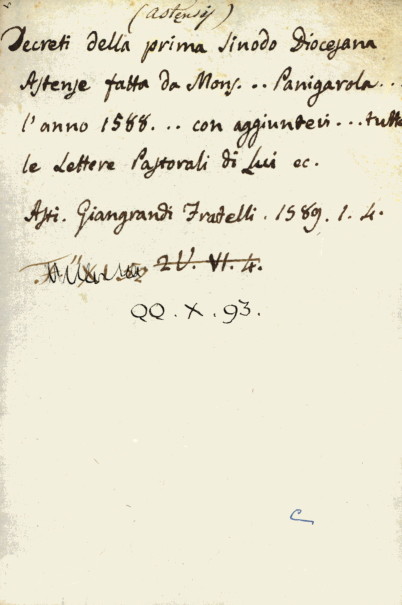 (astensis)
Decreti della prima Sinodo Diocesana
Astense fatta da Mons. .. Panigarola...
l'anno 1588. .. con aggiuntevi ... tutte
le Lettere Pastorali di Lui ec.
Asti. Giangrandi Fratelli. 1589. 1. 4.
2V. VI. 4.
QQ. X. 93.
C